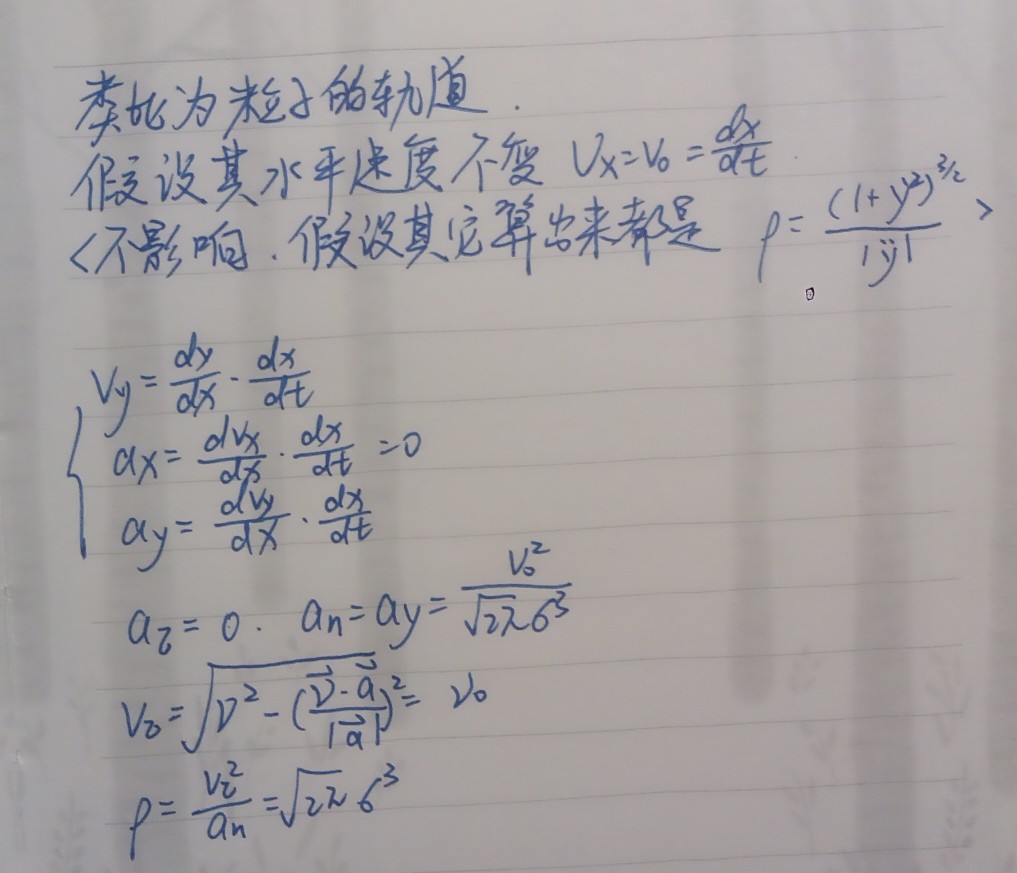 类比为粒子的轨道.
假设其水平速度不变 Vx=V₀=dx/dt
<不影响.假设其它算出来都是 ρ=(1+y'²)^(3/2)/|ÿ| >
Vy=dy/dx·dx/dt
ax=dVx/dx·dx/dt=0
ay=dVy/dx·dx/dt
aτ=0. an=ay=V₀²/(√2π σ³)
Vτ=√(V²-(V⃗·a⃗/|a⃗|)²)=V₀
ρ=Vτ²/an=√2π σ³